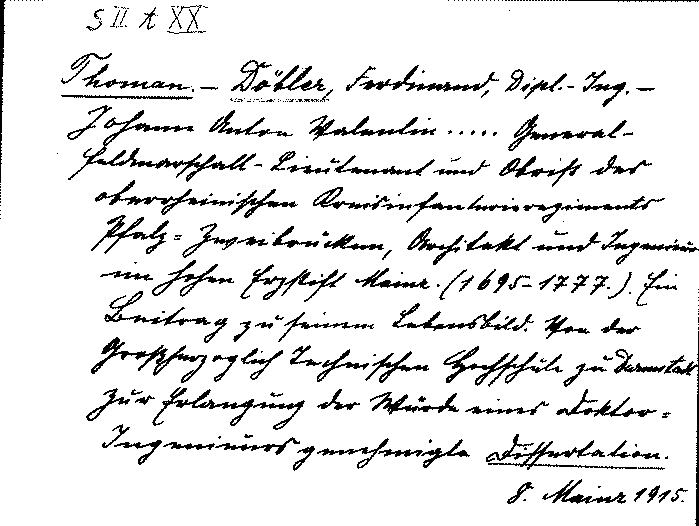 S II t XX
Thoman. – Döbler, Ferdinand, Dipl.-Ing. –
Johann Anton Valentin ..... General-
feldmarschall-Lieutenant und Obrist des
oberrheinischen Kreisinfanterieregiments
Pfalz-Zweibrücken, Architekt und Ingenieur
im hohen Erzstift Mainz. (1695-1777.). Ein
Beitrag zu seinem Lebensbild. Von der
Großherzoglich Technischen Hochschule zu Darmstadt
zur Erlangung der Würde eines Doktor-
Ingenieurs genehmigte Dissertation.
8. Mainz 1915.